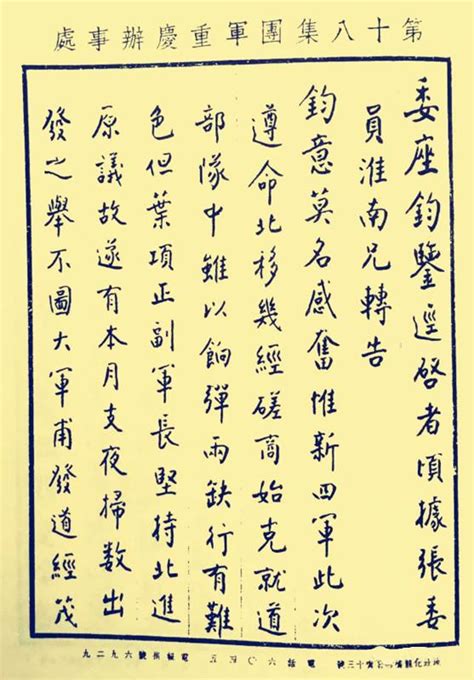 第十八集團軍重慶辦事處
委座鈞鑒逕啓者頃據張委
員淮南兄轉告
鈞意莫名感奮惟新四軍此次
遵命北移幾經磋商始克就道
部隊中雖以餉彈兩缺行有難
色但葉項正副軍長堅持北進
原議故遂有本月支夜掃數出
發之舉不圖大軍甫發道經茂
號三十 電話六〇四五 電報掛號六九二九